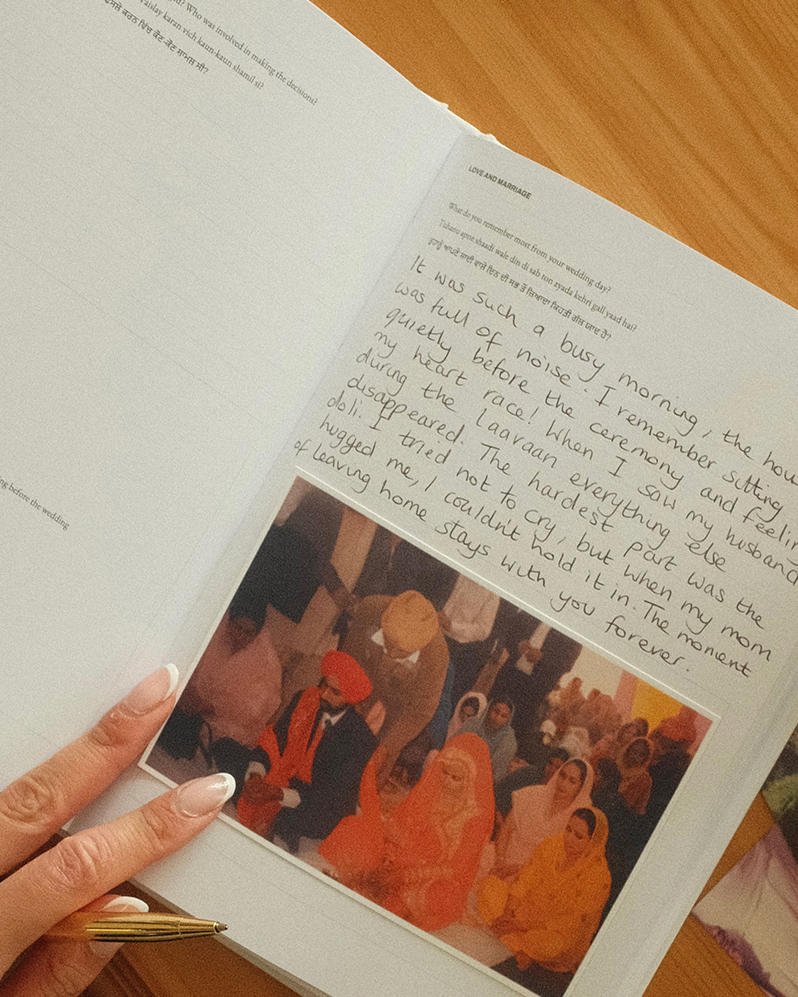 Who was involved in making the decisions?
karan vich kaun-kaun shamil si?
ਕਰਨ ਵਿੱਚ ਕੌਣ-ਕੌਣ ਸ਼ਾਮਲ ਸੀ?
before the wedding
LOVE AND MARRIAGE
What do you remember most from your wedding day?
Tuhanu apne shaadi wale din di sab ton zyada kehri gall yaad hai?
ਤੁਹਾਨੂੰ ਆਪਣੇ ਸ਼ਾਦੀ ਵਾਲੇ ਦਿਨ ਦੀ ਸਭ ਤੋਂ ਜ਼ਿਆਦਾ ਕਿਹੜੀ ਗੱਲ ਯਾਦ ਹੈ?
It was such a busy morning, the hou
was full of noise. I remember sitting
quietly before the ceremony and feelin
my heart race! When I saw my husband
during the Laavaan everything else
disappeared. The hardest part was the
doli. I tried not to cry, but when my mom
hugged me, I couldn't hold it in. The moment
of leaving home stays with you forever.